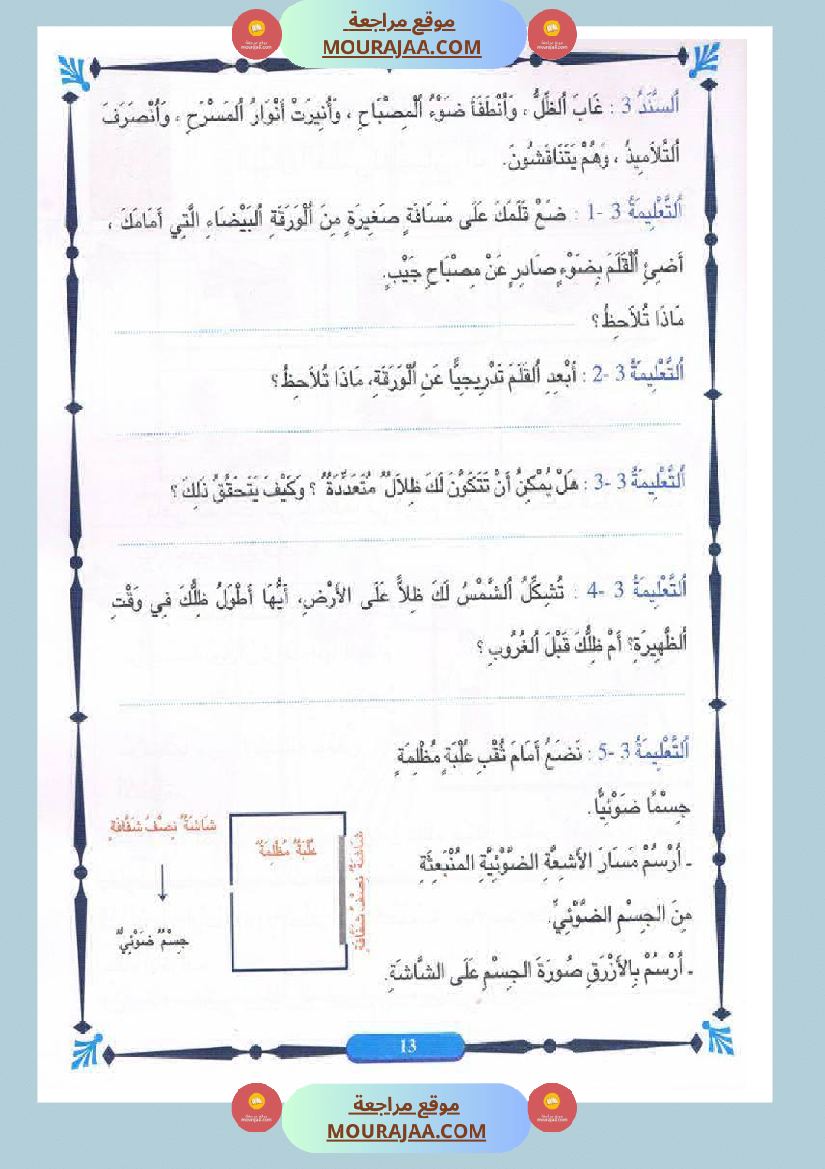 موقع مراجعة
MOURAJAA.COM
اَلسَّنَدُ 3 : غَابَ اَلظِّلُّ ، وَاُنْطَفَأَ ضَوْءُ اُلْمِصْبَاحِ ، وَأُنِيرَتْ أَنْوَارُ اُلمَسْرَحِ ، وَاُنْصَرَفَ
اُلتَّلاَمِيذُ ، وَهُمْ يَتَنَاقَشُونَ.
اَلتَّعْلِيمَةُ 3 -1 : ضَعْ قَلَمَكَ عَلَى مَسَافَةٍ صَغِيرَةٍ مِنَ اُلْوَرَقَةِ اُلبَيْضَاءِ الَّتِي أَمَامَكَ ،
أَضِئِ اُلْقَلَمَ بِضَوْءٍ صَادِرٍ عَنْ مِصْبَاحِ جَيْبٍ.
مَاذَا تُلاَحِظُ؟
اَلتَّعْلِيمَةُ 3 -2 : أَبْعِدِ اُلقَلَمَ تَدْرِيجِيًّا عَنِ اُلْوَرَقَةِ، مَاذَا تُلاَحِظُ؟
اَلتَّعْلِيمَةُ 3 -3 : هَلْ يُمْكِنُ أَنْ تَتَكَوَّنَ لَكَ ظِلاَلٌ مُتَعَدِّدَةٌ ؟ وَكَيْفَ يَتَحَقَّقُ ذَلِكَ ؟
اَلتَّعْلِيمَةُ 3 -4 : تُشِكِّلُ اُلشَّمْسُ لَكَ ظِلاًّ عَلَى الأَرْضِ، أَيُّهَا أَطْوَلُ ظِلُّكَ فِي وَقْتِ
اُلظَّهِيرَةِ؟ أَمْ ظِلُّكَ قَبْلَ اُلغُرُوبِ ؟
اَلتَّعْلِيمَةُ 3 -5 : نَضَعُ أَمَامَ ثُقْبِ عُلْبَةٍ مُظْلِمَةٍ
جِسْمًا ضَوْئِيًّا.
- اُرْسُمْ مَسَارَ الأَشِعَّةِ الضَّوْئِيَّةِ المُنْبَعِثَةِ
مِنَ الجِسْمِ الضَّوْئِيِّ.
- اُرْسُمْ بِالأَزْرَقِ صُورَةَ الجِسْمِ عَلَى الشَّاشَةِ.
شَاشَةٌ نِصْفُ شَفَّافَةٍ
عُلْبَةٌ مُظْلِمَةٌ
شَاشَةٌ نِصْفُ شَفَّافَةٍ
جِسْمٌ ضَوْئِيٌّ
13
موقع مراجعة
MOURAJAA.COM